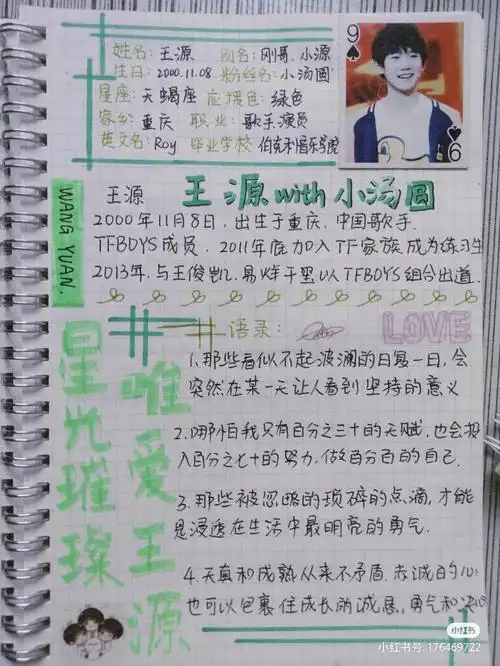 姓名:王源 别名:刚哥.小源
生日:2000.11.08 粉丝名:小汤圆
星座:天蝎座 应援色:绿色
家乡:重庆 职业:歌手.演员
英文名:Roy 毕业学校:伯克利音乐学院
9
9
WANG YUAN.
王源 王源with小汤圆
2000年11月8日,出生于重庆.中国歌手.
TFBOYS成员.2011年底加入TF家族成为练习生
2013年.与王俊凯.易烊千玺以TFBOYS组合出道.
语录:
LOVE
1.那些看似不起波澜的日复一日,会
突然在某一天让人看到坚持的意义
2.哪怕我只有百分之三十的天赋,也会投
入百分之七十的努力,做百分百的自己.
3.那些被忽略的琐碎的点滴,才能
是浸透在生活中最明亮的勇气.
4.天真和成熟从来不矛盾.赤诚的心
也可以包裹住成长的诚恳,勇气和
星光璀璨
唯爱王源
小红书
小红书号:176469722